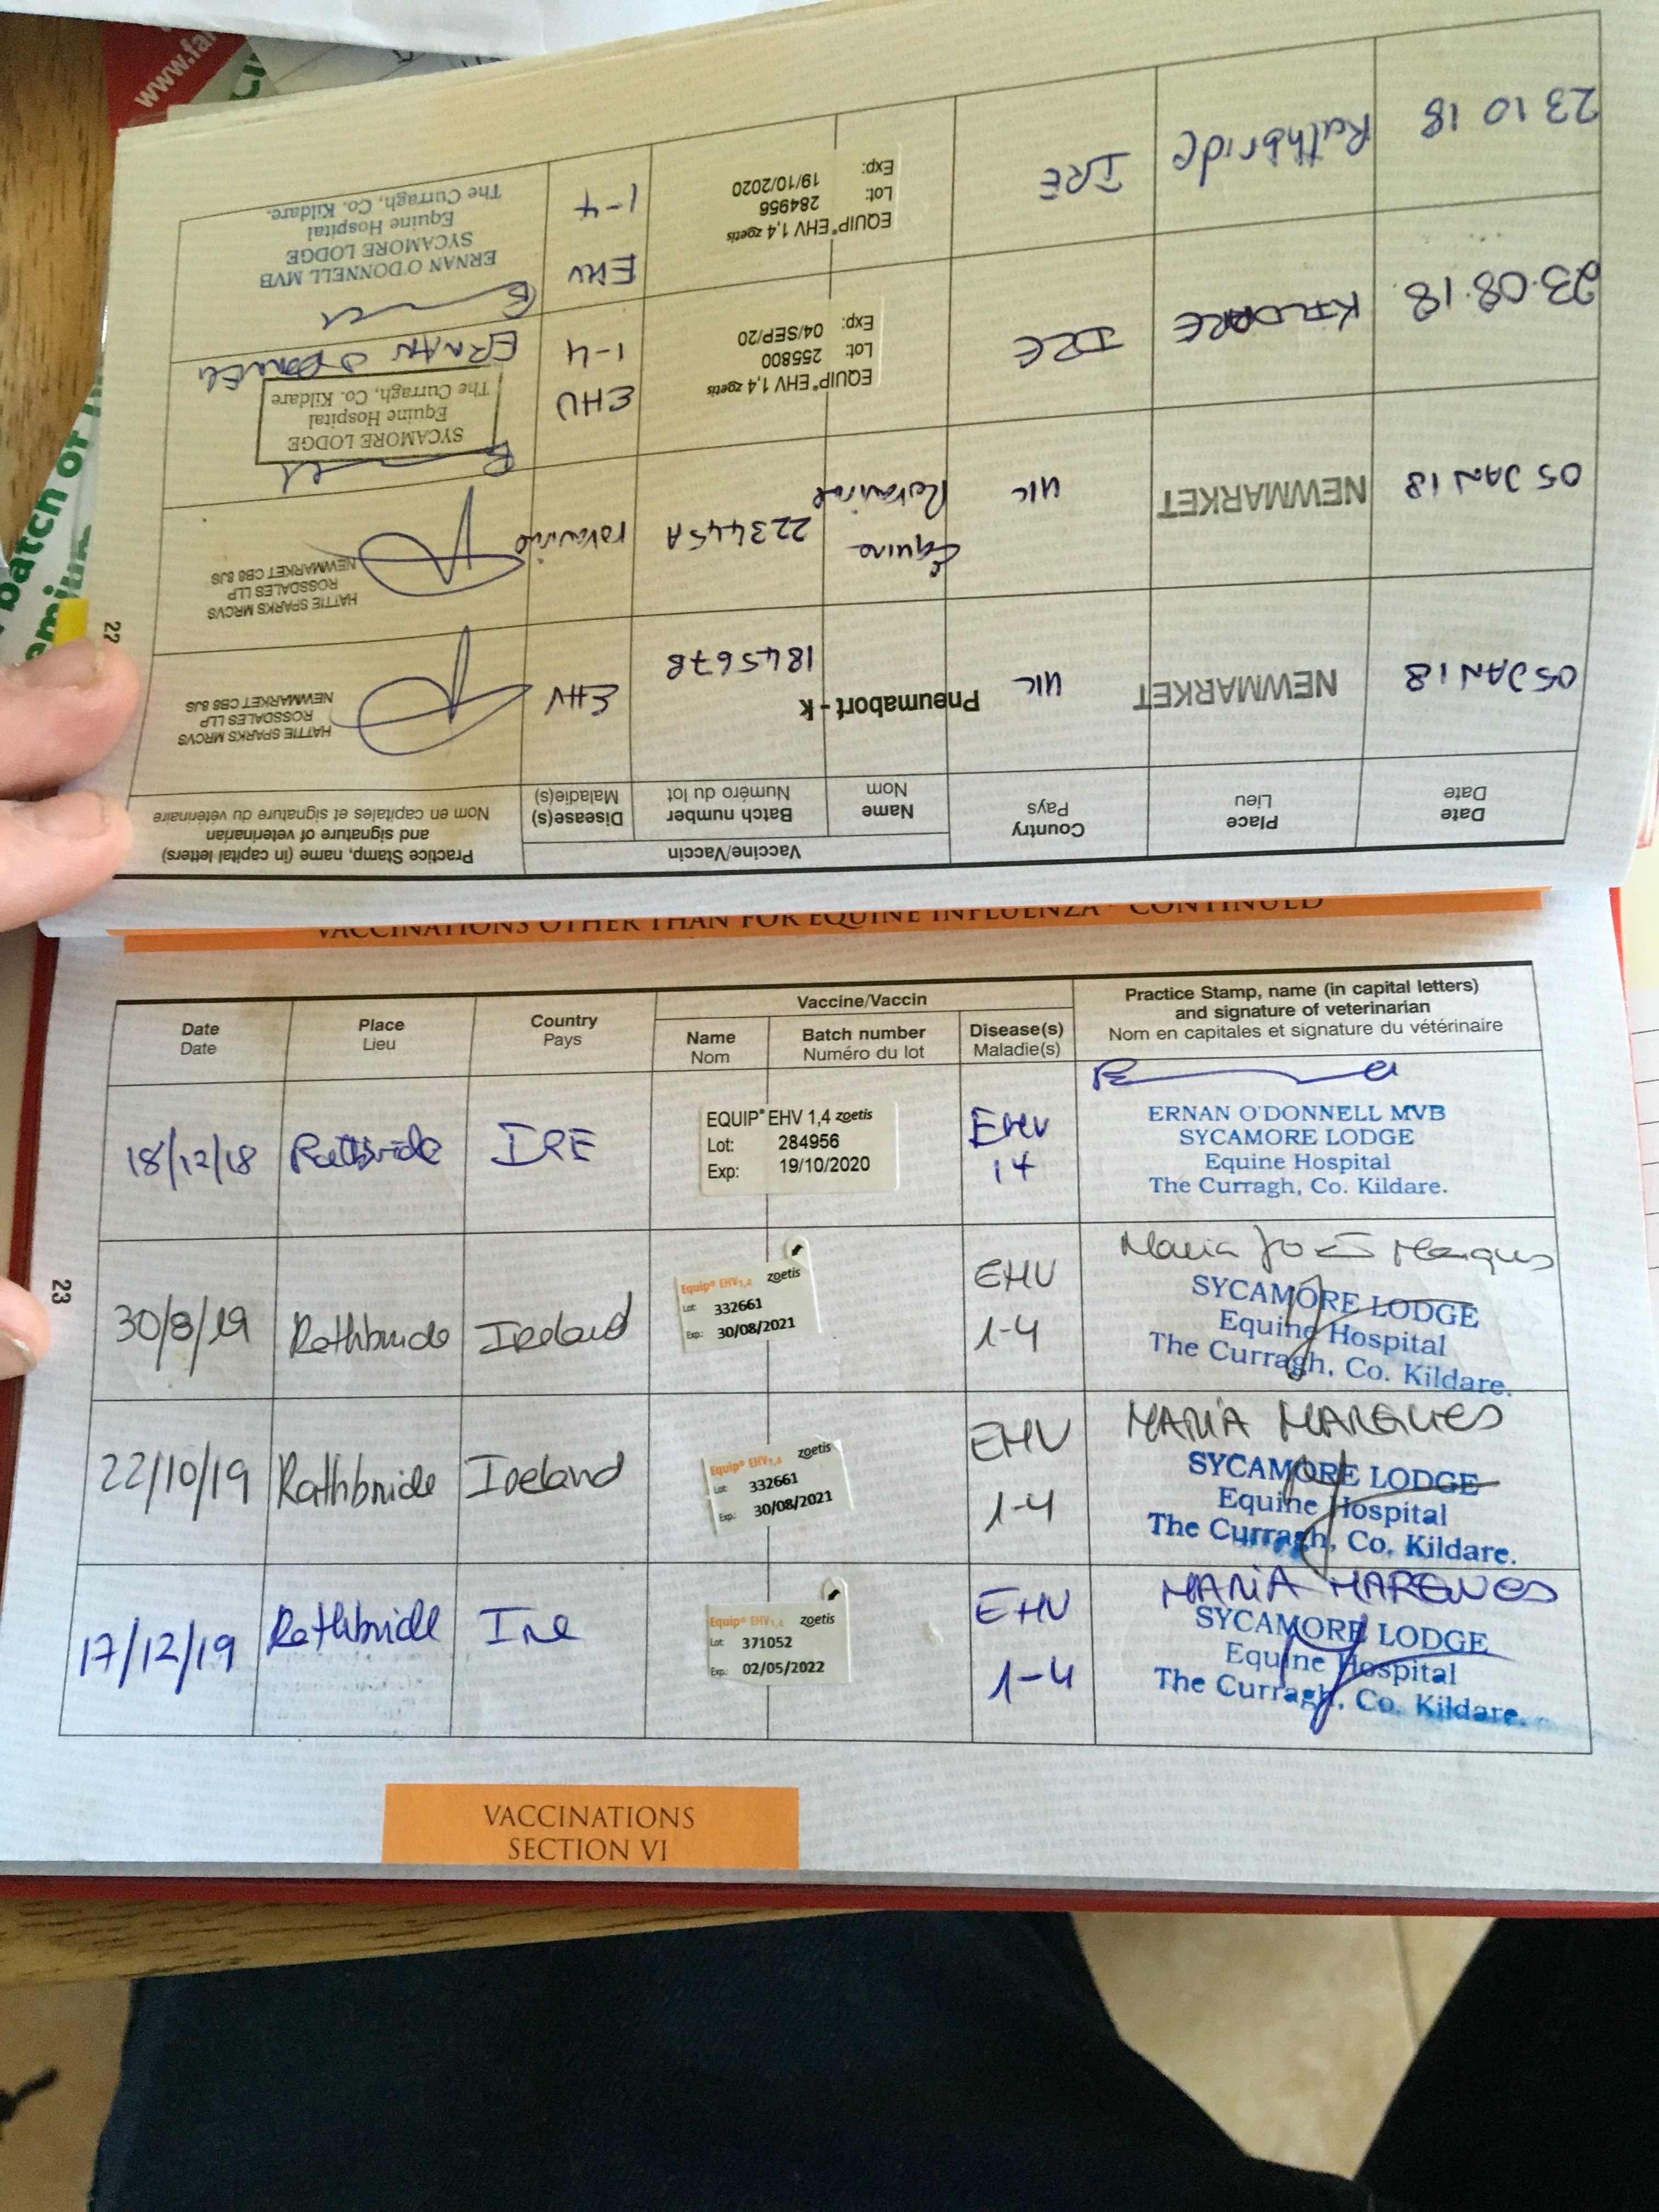 www.fa
batch of
22
Date
Date
Place
Lieu
Country
Pays
Vaccine/Vaccin
Name
Nom
Batch number
Numéro du lot
Disease(s)
Maladie(s)
Practice Stamp, name (in capital letters)
and signature of veterinarian
Nom en capitales et signature du vétérinaire
05 JAN 18
NEWMARKET
UK
Pneumabort - K
184567B
EHV
HATTIE SPARKS MRCVS
ROSSDALES LLP
NEWMARKET CB8 8JS
05 JAN 18
NEWMARKET
UK
Equine
Rotavirus
223445A
rotavirus
HATTIE SPARKS MRCVS
ROSSDALES LLP
NEWMARKET CB8 8JS
23.08.18.
KILDARE
IRE
EQUIP® EHV 1,4 zoetis
Lot: 255800
Exp: 04/SEP/20
EHV
1-4
SYCAMORE LODGE
Equine Hospital
The Curragh, Co. Kildare
ERNAN O'DONNELL
23 10 18
Rathbride
IRE
EQUIP® EHV 1,4 zoetis
Lot: 284956
Exp: 19/10/2020
EHV
1-4
ERNAN O'DONNELL MVB
SYCAMORE LODGE
Equine Hospital
The Curragh, Co. Kildare.
VACCINATIONS OTHER THAN FOR EQUINE INFLUENZA - CONTINUED
23
Date
Date
Place
Lieu
Country
Pays
Vaccine/Vaccin
Name
Nom
Batch number
Numéro du lot
Disease(s)
Maladie(s)
Practice Stamp, name (in capital letters)
and signature of veterinarian
Nom en capitales et signature du vétérinaire
18/12/18
Rathbride
IRE
EQUIP® EHV 1,4 zoetis
Lot: 284956
Exp: 19/10/2020
EHV
14
ERNAN O'DONNELL MVB
SYCAMORE LODGE
Equine Hospital
The Curragh, Co. Kildare.
30/8/19
Rathbride
Ireland
Equip® EHV1,4 zoetis
Lot: 332661
Exp: 30/08/2021
EHV
1-4
Maria José Marques
SYCAMORE LODGE
Equine Hospital
The Curragh, Co. Kildare.
22/10/19
Rathbride
Ireland
Equip® EHV1,4 zoetis
Lot: 332661
Exp: 30/08/2021
EHV
1-4
MARIA MARQUES
SYCAMORE LODGE
Equine Hospital
The Curragh, Co. Kildare.
17/12/19
Rathbride
Ire
Equip® EHV1,4 zoetis
Lot: 371052
Exp: 02/05/2022
EHV
1-4
MARIA MARQUES
SYCAMORE LODGE
Equine Hospital
The Curragh, Co. Kildare.
VACCINATIONS
SECTION VI